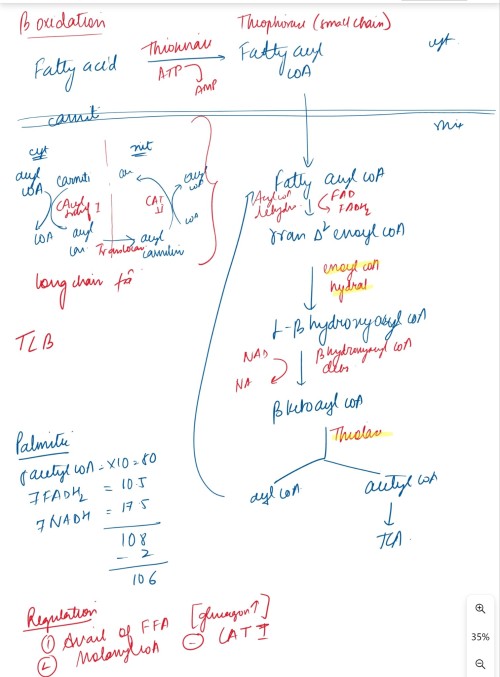 β oxidation
Theophorase (small chain)
Fatty acid
Thiokinase
ATP
AMP
Fatty acyl
coA
cyt
carniti
mix
cyt
mit
acyl
coA
carniti
acyl
coA
CAT
II
coA
coA
acyl
car
Translocas
acyl
carnitin
Long chain fa
TLB
Fatty acyl coA
Acyl coA
dehydro
FAD
FADH2
tran Δ² enoyl coA
enoyl coA
hydrat
L-β hydroxyacyl coA
NAD
NA
β hydroxyacyl coA
dehs
β ketoacyl coA
Thiolas
acyl coA
acetyl coA
TCA
Palmitic
8 acetyl coA = ×10 = 80
7 FADH2 = 10.5
7 NADH = 17.5
108
- 2
106
Regulation
① Avail of FFA [glucagon ↑]
② Malonyl coA ⊖ CAT I
35%